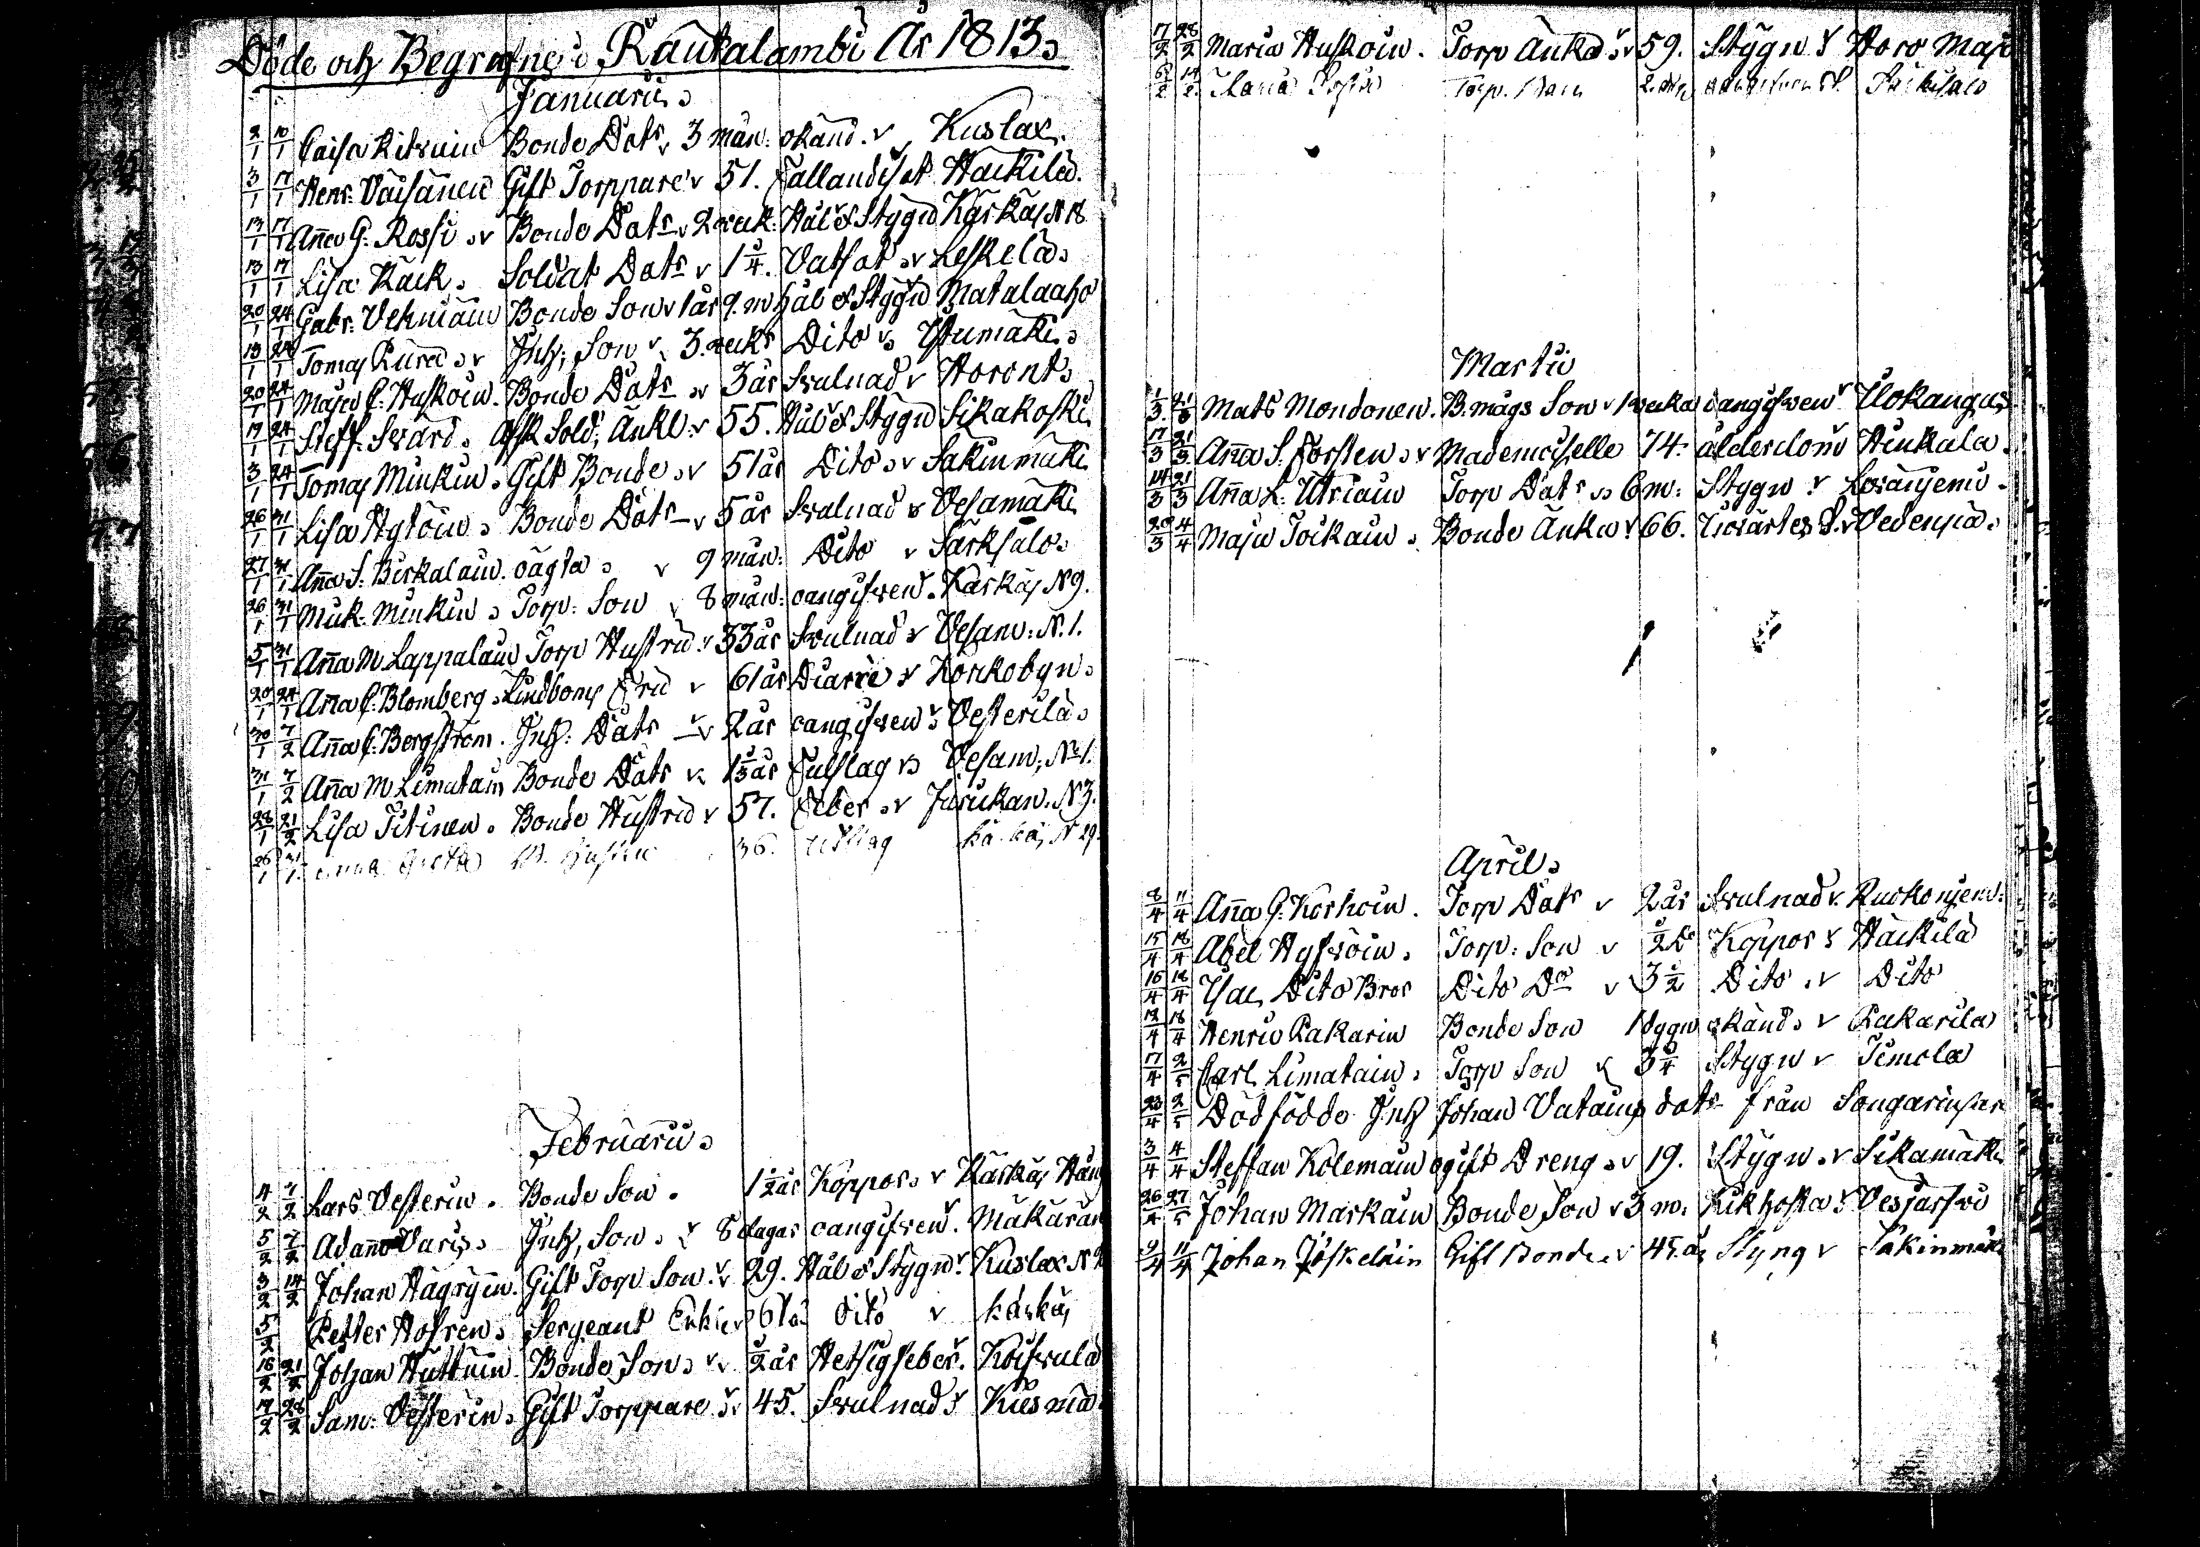 Döde och Begrafne i Rautalambi År 1813
Januarii
2/1 10/1 Caisa Kitunin Bonde Dotr 3 mån: okänd. Kuslax.
3/1 17/1 Henr: Väisänen Gift Torppare 51. Fallandesot Hackila.
13/1 17/1 Aña G: Rossi Bonde Dotr 2 veck: Hål & Stygn Kärkäs N 18
13/1 17/1 Lisa Räck. Soldat Dotr 1 1/4. Vatsot Leskelä
20/1 24/1 Gabr: Vehmäin Bonde Son 1 år 9. m Hål & Stygn Matalaaho
13/1 24/1 Tomas Inh; Son 3. veckr Dito Istumäki
20/1 24/1 Maja C: Huskoin. Bonde Dotr 3 år Svulnad Horont
17/1 24/1 Steff. Svärd. Afsk Sold; Änkl: 55. Hål & Stygn Sikakoski
3/1 24/1 Tomas Minkin. Gift Bonde 51 år Dito Säkinmäki
26/1 31/1 Lisa Hytöin. Bonde Dotr 5 år Svulnad Vesamäki
27/1 31/1 Aña S: Birkalain. oägta 9 mån: Dito Särkisalo
26/1 31/1 Mick: Minkin Torp: Son 8 mån: oangifven. Kärkäs N 9.
5/1 31/1 Aña M. Lappalain Torp Hustru 33 år Svulnad Vesam: N. 1.
20/1 24/1 Aña C: Blomberg. Lindboms Fru 61 år Diarré Konkobyn
30/1 7/2 Aña C: Bergström. Inh: Dotr 2 år oangifven Vesterilä
31/1 7/2 Aña M Limatain Bonde Dotr 1 1/3 år Vesam; No 1.
28/1 21/2 Lisa Titinen. Bonde Hustru 57. Feber N 3.
26/1 31/1 Anna Greta 36. N 29.
Februarii
4/2 7/2 Lars Vesterin. Bonde Son. 1 1/2 år Koppor Kärkäs
5/2 7/2 Adam Varis Inh, Son. 8 dagar oangifven.
3/2 14/2 Johan Hägryin. Gift Torp Son. 29. Hål & Stygn. Kuslax N
5/2 Petter Hofren Sergeant 67 Dito Kärkäs
16/2 21/2 Johan Huttuin Bonde Son 1/2 år Hetsigfeber. Koivula
17/2 28/2 Sam: Vesterin Gift Torppare 45. Svulnad Kiesimä
17/2 28/2 Maria Huskoin. Torp Änka 59. Stygn
6/2 14/2 Maria Torp.
Martii
1/3 21/3 Mats Mondonen. B. mågs Son 1 vecka oangifven Ulokangas
17/3 21/3 Aña S. Forsten Mademoiselle 74. ålderdom Hinkala.
14/3 21/3 Aña L. Utriain Torp Dotr 6 m: Stygn
20/3 4/4 Maja Toikain. Bonde Änka 66.
April
8/4 11/4 Aña G. Korhoin. Torp Dotr 2 år Svulnad
15/4 18/4 Abel Hyvöin. Torp: Son 1/2 Koppor Häckilä
16/4 18/4 Isac Dito Bror Dito Do 3 1/2 Dito Dito
12/4 18/4 Henric Pakarin Bonde Son okänd Pakarila
17/4 2/5 Carl Limatain. Torp Son 3 3/4 Stygn Timola
23/4 2/5 Dödfödde Inh Johan Vatains dotr från
3/4 4/4 Steffan Kolemain ogift Dreng 19. Stygn Sikamäki
26/4 27/5 Johan Markain Bonde Son 3 m. Kikhosta Vesjarfvi
9/4 11/4 Johan Jäskeläin Gift Bonde 45. år Styng Säkinmäki